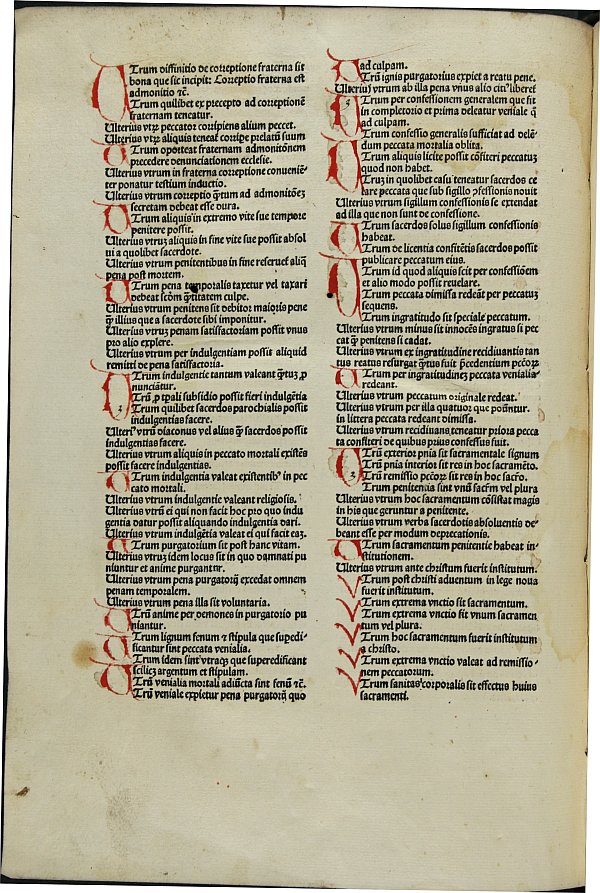 Trum diffinitio de correptione fraterna sit
bona que sic incipit: Correptio fraterna est
admonitio ⁊c̄.
Trum quilibet ex precepto ad correptionē
fraternam teneatur.
Ulterius vtrꝫ peccator corripiens alium peccet.
Ulterius vtrꝫ aliquis teneat᷑ corripe prelatū suum
Trum oporteat fraternam admonitōnem
precedere denunciationem ecclesie.
Ulterius vtrum in fraterna correptione conueniē-
ter ponatur testium inductio.
Ulterius vtrum correptio q̄tum ad admonitōeꝫ
secretam debeat esse dura.
Trum aliquis in extremo vite sue tempore
penitere possit.
Ulterius vtruꝫ aliquis in fine vite sue possit absol
ui a quolibet sacerdote.
Ulterius vtrum penitentibus in fine reseruet᷑ aliq̄
pena post mortem.
Trum pena temporalis taxetur vel taxari
debeat scd̄m q̄titatem culpe.
Ulterius vtrum penitens sit debitor maioris pene
q̄ illius que a sacerdote sibi imponitur.
Ulterius vtruꝫ penam satisfactoriam possit vnus
pro alio explere.
Ulterius vtrum per indulgentiam possit aliquid
remitti de pena satisfactoria.
Trum indulgentie tantum valeant q̄tuꝫ ꝓ
nunciātur.
Trū ꝓ tp̄ali subsidio possit fieri indulgētia
Trum quilibet sacerdos parochialis possit
indulgentias facere.
Ulteri᷒ vtrū diaconus vel alius q̄ sacerdos possit
indulgentias facere.
Ulterius vtrum aliquis in peccato mortali existēs
possit facere indulgentias.
Trum indulgentia valeat existentib᷒ in pec
cato mortali.
Ulterius vtrum indulgentie valeant religiosis.
Ulterius vtrū ei qui non facit hoc pro quo indu
gentia datur possit aliquando indulgentia dari.
Ulterius vtrum indulgētia valeat ei qui facit eaꝫ.
Trum purgatorium sit post hanc vitam.
Ulterius vtruꝫ idem locus sit in quo damnati pu
niuntur et anime purgantur.
Ulterius vtrum pena purgatorij excedat omnem
penam temporalem.
Ulterius vtrum pena illa sit voluntaria.
Trū anime per demones in purgatorio pu
niantur.
Trum lignum fenum ⁊ stipula que supedi-
ficantur sint peccata venialia.
Trum idem sint vtraqꝫ que superedificant
scilicꝫ argentum et stipulam.
Trū venialia mortali adiūcta sint fenū ⁊c̄.
Trū veniale expietur pena purgatorij quo
ad culpam.
Trū ignis purgatorius expiet a reatu pene.
Ulterius vtrum ab illa pena vnus alio citi᷒ liberet᷑
Trum per confessionem generalem que fit
in completorio et prima deleatur veniale q̄
ad culpam.
Trum confessio generalis sufficiat ad delē-
dum peccata mortalia oblita.
Trum aliquis licite possit cōfiteri peccatuꝫ
quod non habet.
Truꝫ in quolibet casu teneatur sacerdos ce
lare peccata que sub sigillo ꝯfessionis nouit
Ulterius vtrum sigillum confessionis se extendat
ad illa que non sunt de confessione.
Trum sacerdos solus sigillum confessionis
habeat.
Trum de licentia confitētis sacerdos possit
publicare peccatum eius.
Trum id quod aliquis scit per confessiōem
et alio modo possit reuelare.
Trum peccata dimissa redeāt per peccatuꝫ
sequens.
Trum ingratitudo sit speciale peccatum.
Ulterius vtrum minus sit innocēs ingratus si pec
cat q̄ penitens si cadat.
Ulterius vtrum ex ingratitudine recidiuantis tan
tus reatus resurgat q̄tus fuit p̄cedentium pctōꝝ
Trum per ingratitudinē peccata venialia
redeant.
Ulterius vtrum peccatum originale redeat.
Ulterius vtrum per illa quatuor que ponūtur.
in littera peccata redeant dimissa.
Ulterius vtrum recidiuans teneatur priora pecca
ta confiteri de quibus prius confessus fuit.
Trū exterior pnīa sit sacramentale signum
Trū pnīa interior sit res in hoc sacramēto.
Trū remissio pctōꝝ sit res in hoc sacr̄o.
Trum penitentia sint vnū sacr̄m vel plura
Ulterius vtrum hoc sacramentum cōsistat magis
in his que geruntur a penitente.
Ulterius vtrum verba sacerdotis absoluentis de-
beant esse per modum deprecationis.
Trum sacramentum penitentie habeat in-
stitutionem.
Ulterius vtrum ante christum fuerit institutum.
Trum post christi aduentum in lege noua
fuerit institutum.
Trum extrema vnctio sit sacramentum.
Trum extrema vnctio sit vnum sacramen
tum vel plura.
Trum hoc sacramentum fuerit institutum
a christo.
Trum extrema vnctio valeat ad remissio-
nem peccatorum.
Trum sanitas corporalis sit effectus huius
sacramenti.